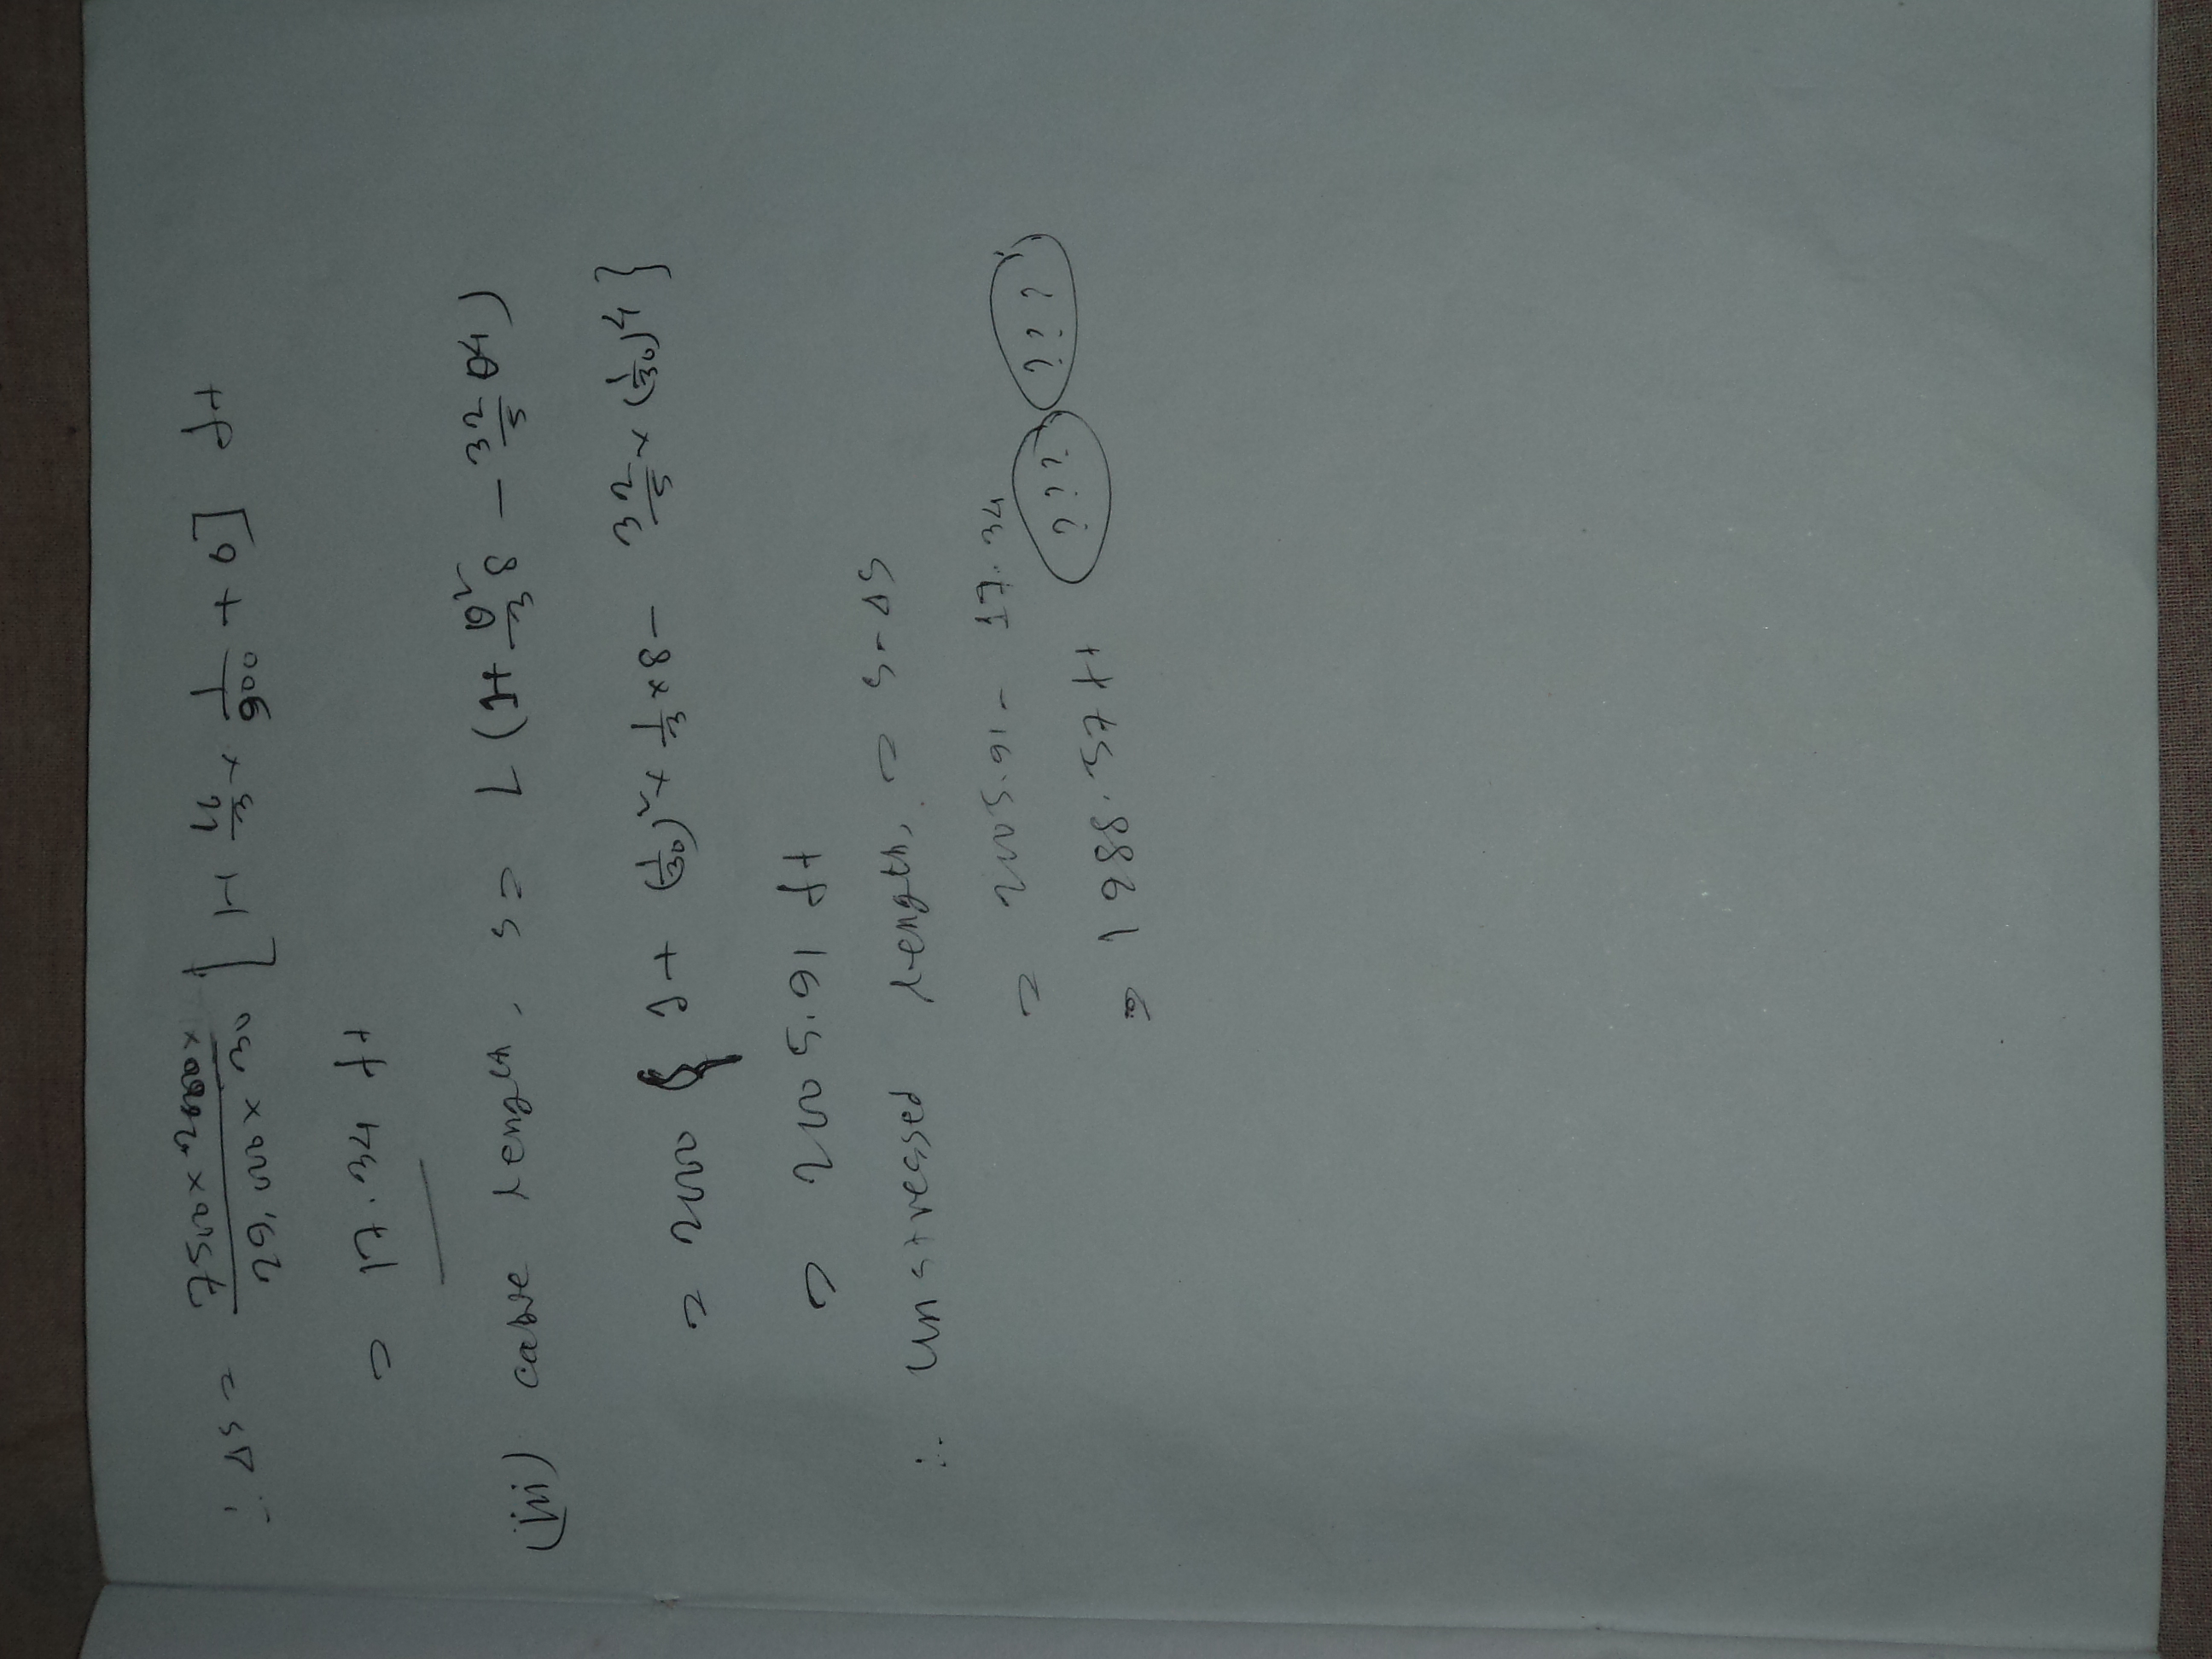 ∴ Δs = 750×2000×2000 / 29.200×30 [1 + 4/3 × 1/900 + 0] ft
= 17.34 ft
(iii) cable length, s = L (1 + 8/3 θ² - 32/5 θ⁴)
= 2000 { 1 + (1/30)² × 1/3 × 8 - 32/5 × (1/30)⁴ }
= 2005.91 ft
∴ unstressed length, = s - Δs
= 2005.91 - 17.34
= 1988.57 ft